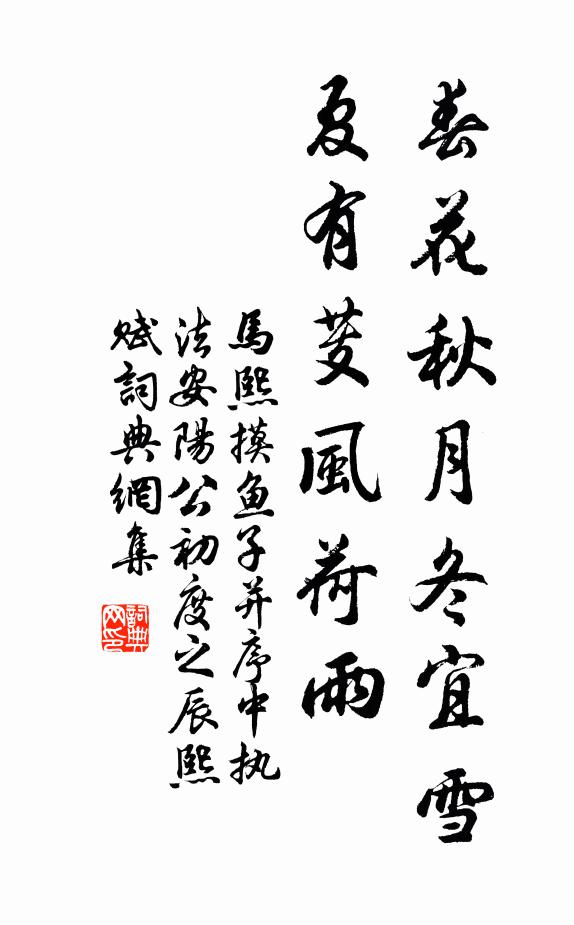 春花秋月冬宜雪
夏有芰風荷雨
馬熙摸鱼子并序中执
法安陽公初度之辰熙
赋詞典網集
詞典网印